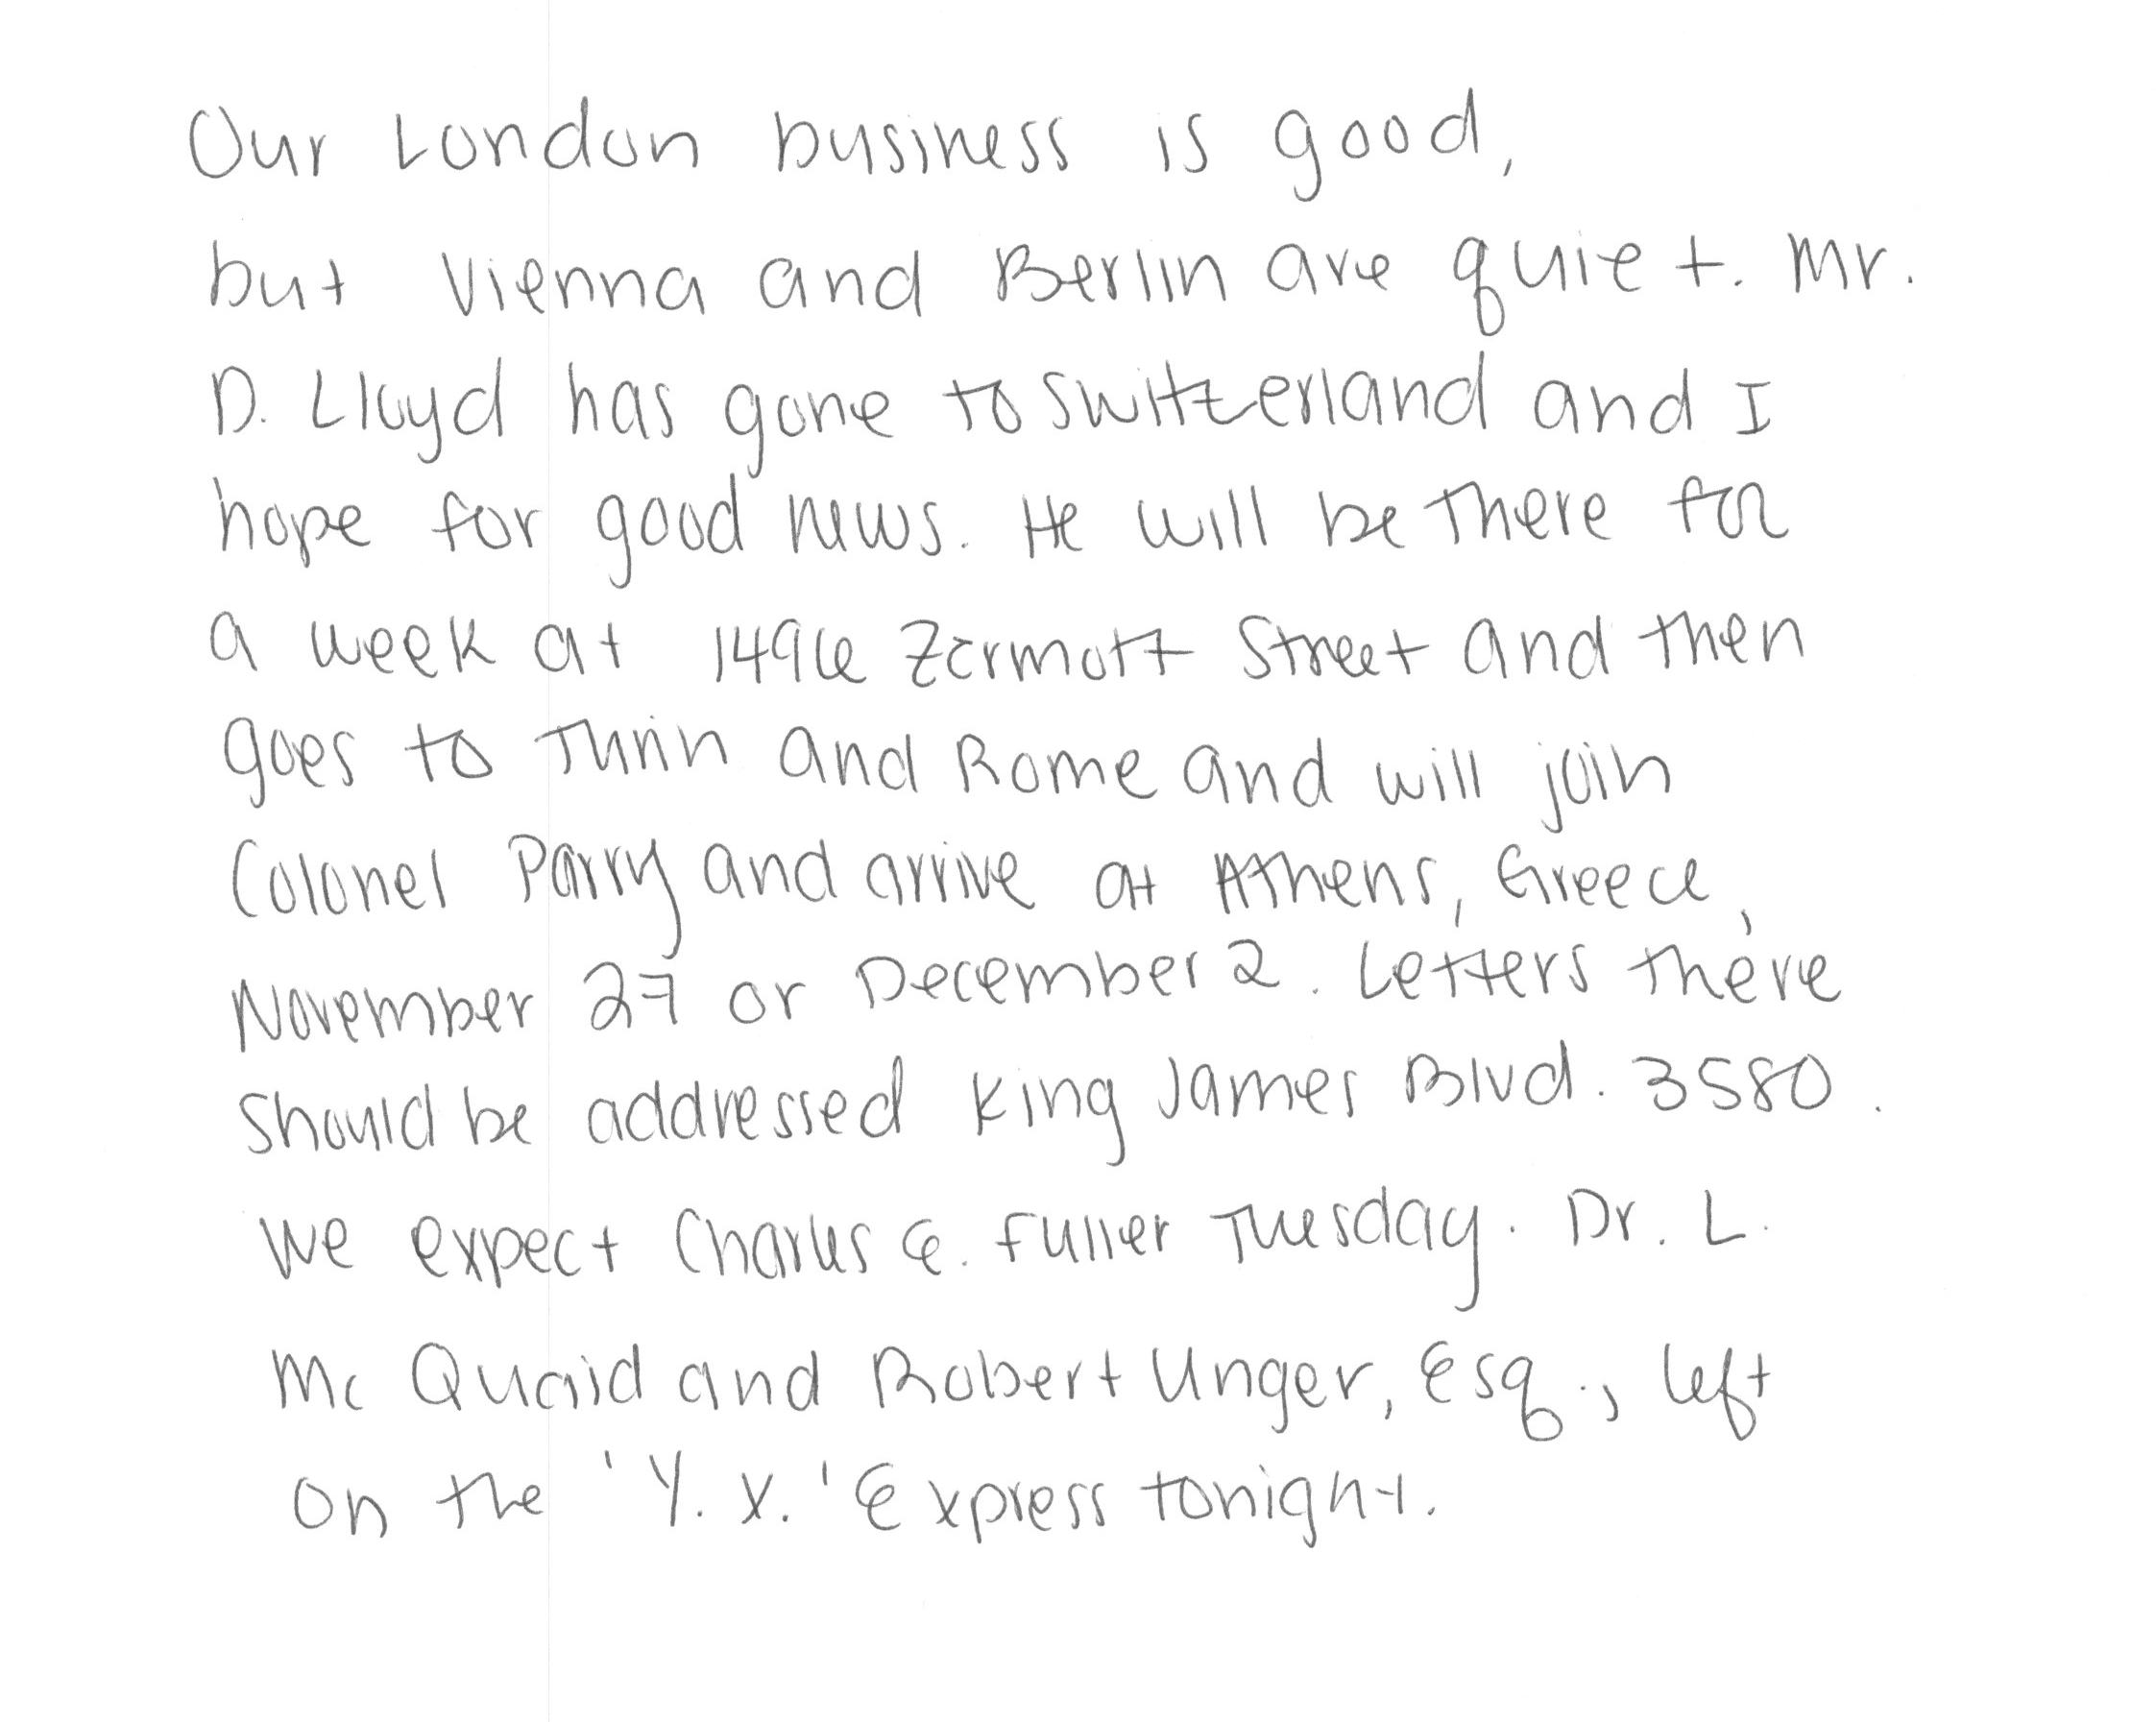 Our London business is good,
but Vienna and Berlin are quiet. Mr.
D. Lloyd has gone to Switzerland and I
hope for good news. He will be there for
a week at 1496 Zermott Street and then
goes to Turin and Rome and will join
Colonel Parry and arrive at Athens, Greece,
November 27 or December 2. Letters there
should be addressed King James Blvd. 3580.
We expect Charles E. Fuller Tuesday. Dr. L.
Mc Quaid and Robert Unger, Esq., left
on the 'Y. X.' Express tonight.